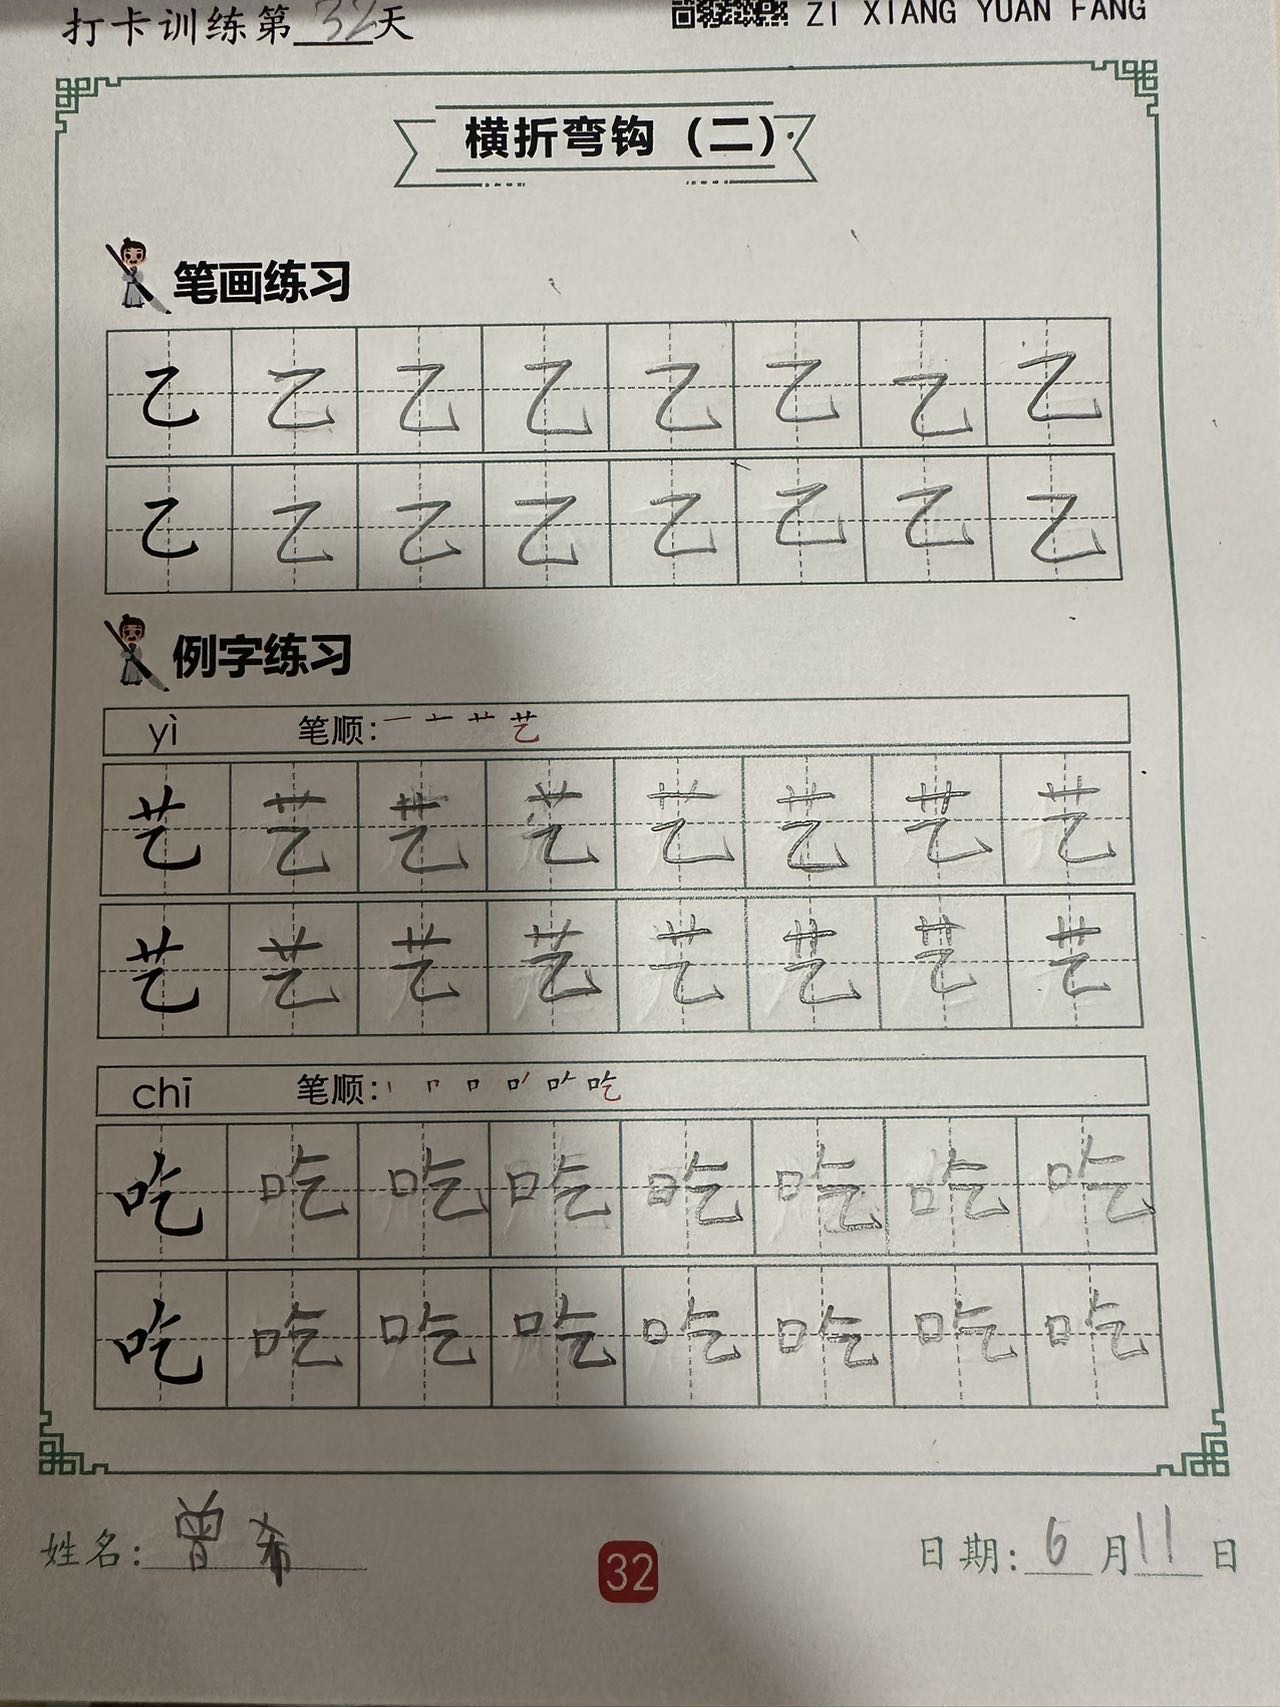 打卡训练第32天
ZI XIANG YUAN FANG
横折弯钩（二）
笔画练习
乙 乙 乙 乙 乙 乙 乙 乙
乙 乙 乙 乙 乙 乙 乙 乙
例字练习
yì 笔顺: 一 十 艹 艺
艺 艺 艺 艺 艺 艺 艺 艺
艺 艺 艺 艺 艺 艺 艺 艺
chī 笔顺: 丨 𠃍 口 口丿 口𠂉 吃
吃 吃 吃 吃 吃 吃 吃 吃
吃 吃 吃 吃 吃 吃 吃 吃
姓名: 曾希
32
日期: 6月11日